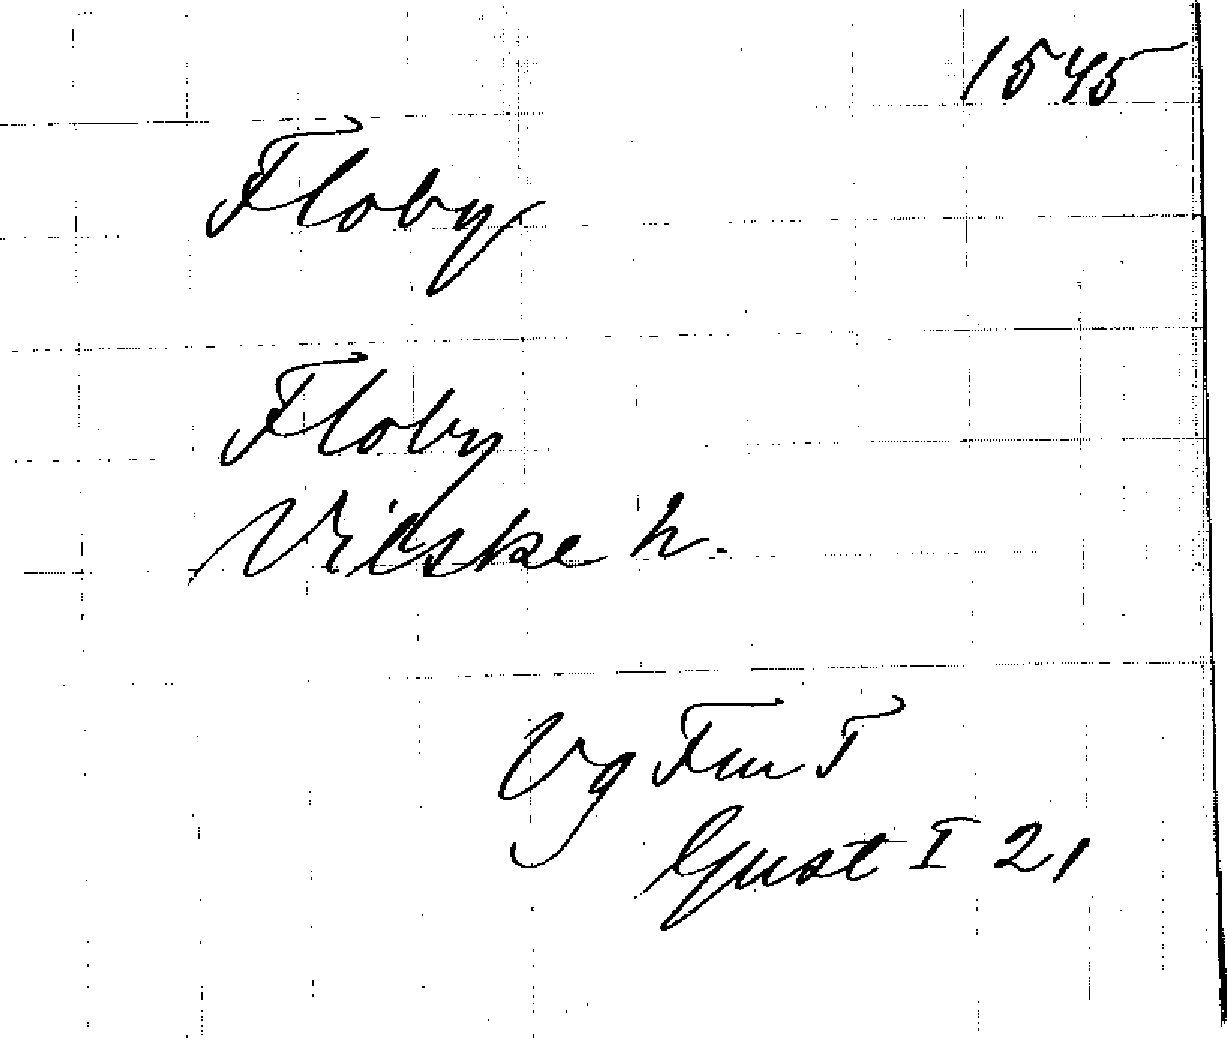 1545
Floby
Floby
Vilske h.
Vg Fm T
Gust I 21